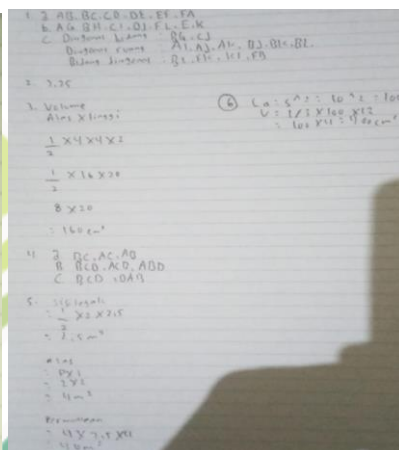 1. a AB. BC. CD. DE. EF. FA
b. AG BH. CI. DJ. FL. E.K
c. Diagonal bidang : BG. CJ
Diagonal ruang : AI. AJ. AK. BJ. BK. BL
Bidang diagonal :
2. 3.25
3. Volume
Alas x tinggi
1/2 x 4 x 4 x
1/2 x 16 x 20
8 x 20
: 160 cm³
4. a BC. AC. AB
B BCD. ACD. ABD
C BCD. DAB
5. Segitiga
: 1/2 x 2 x 2,5
: 2,5 m²
Alas
: 2 x 2
: 4 m²
Permukaan
: 4 x
6 La : s^2 : 10^2 : 100
V : 1/3 x 100 x 12
: 100 x 4 : 400 cm³